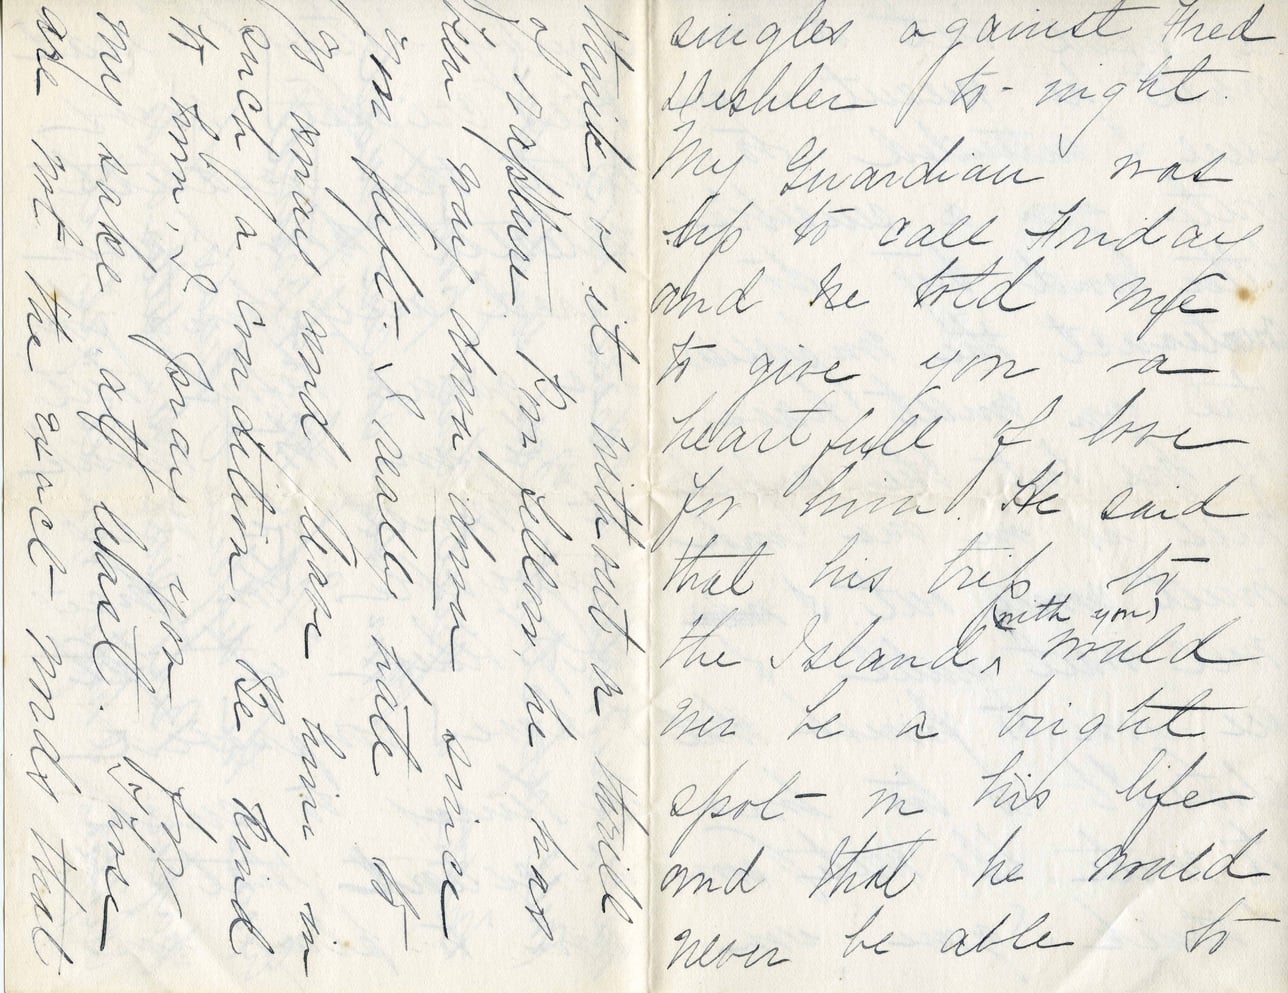 singles against Fred
Deshler to-night.
My Guardian was
up to call Friday
and he told me
to give you a
heart full of love
for him. He said
that his trip to
the Island ^ (with you) would
ever be a bright
spot in his life
and that he would
never be able to
think of it without a thrill
of rapture. Poor fellow, he has
been way down down since
you left. I really hate to
go away and leave him in
such a condition. Be kind
to him, I pray you. For
my sake at least. Those
are not the exact words that